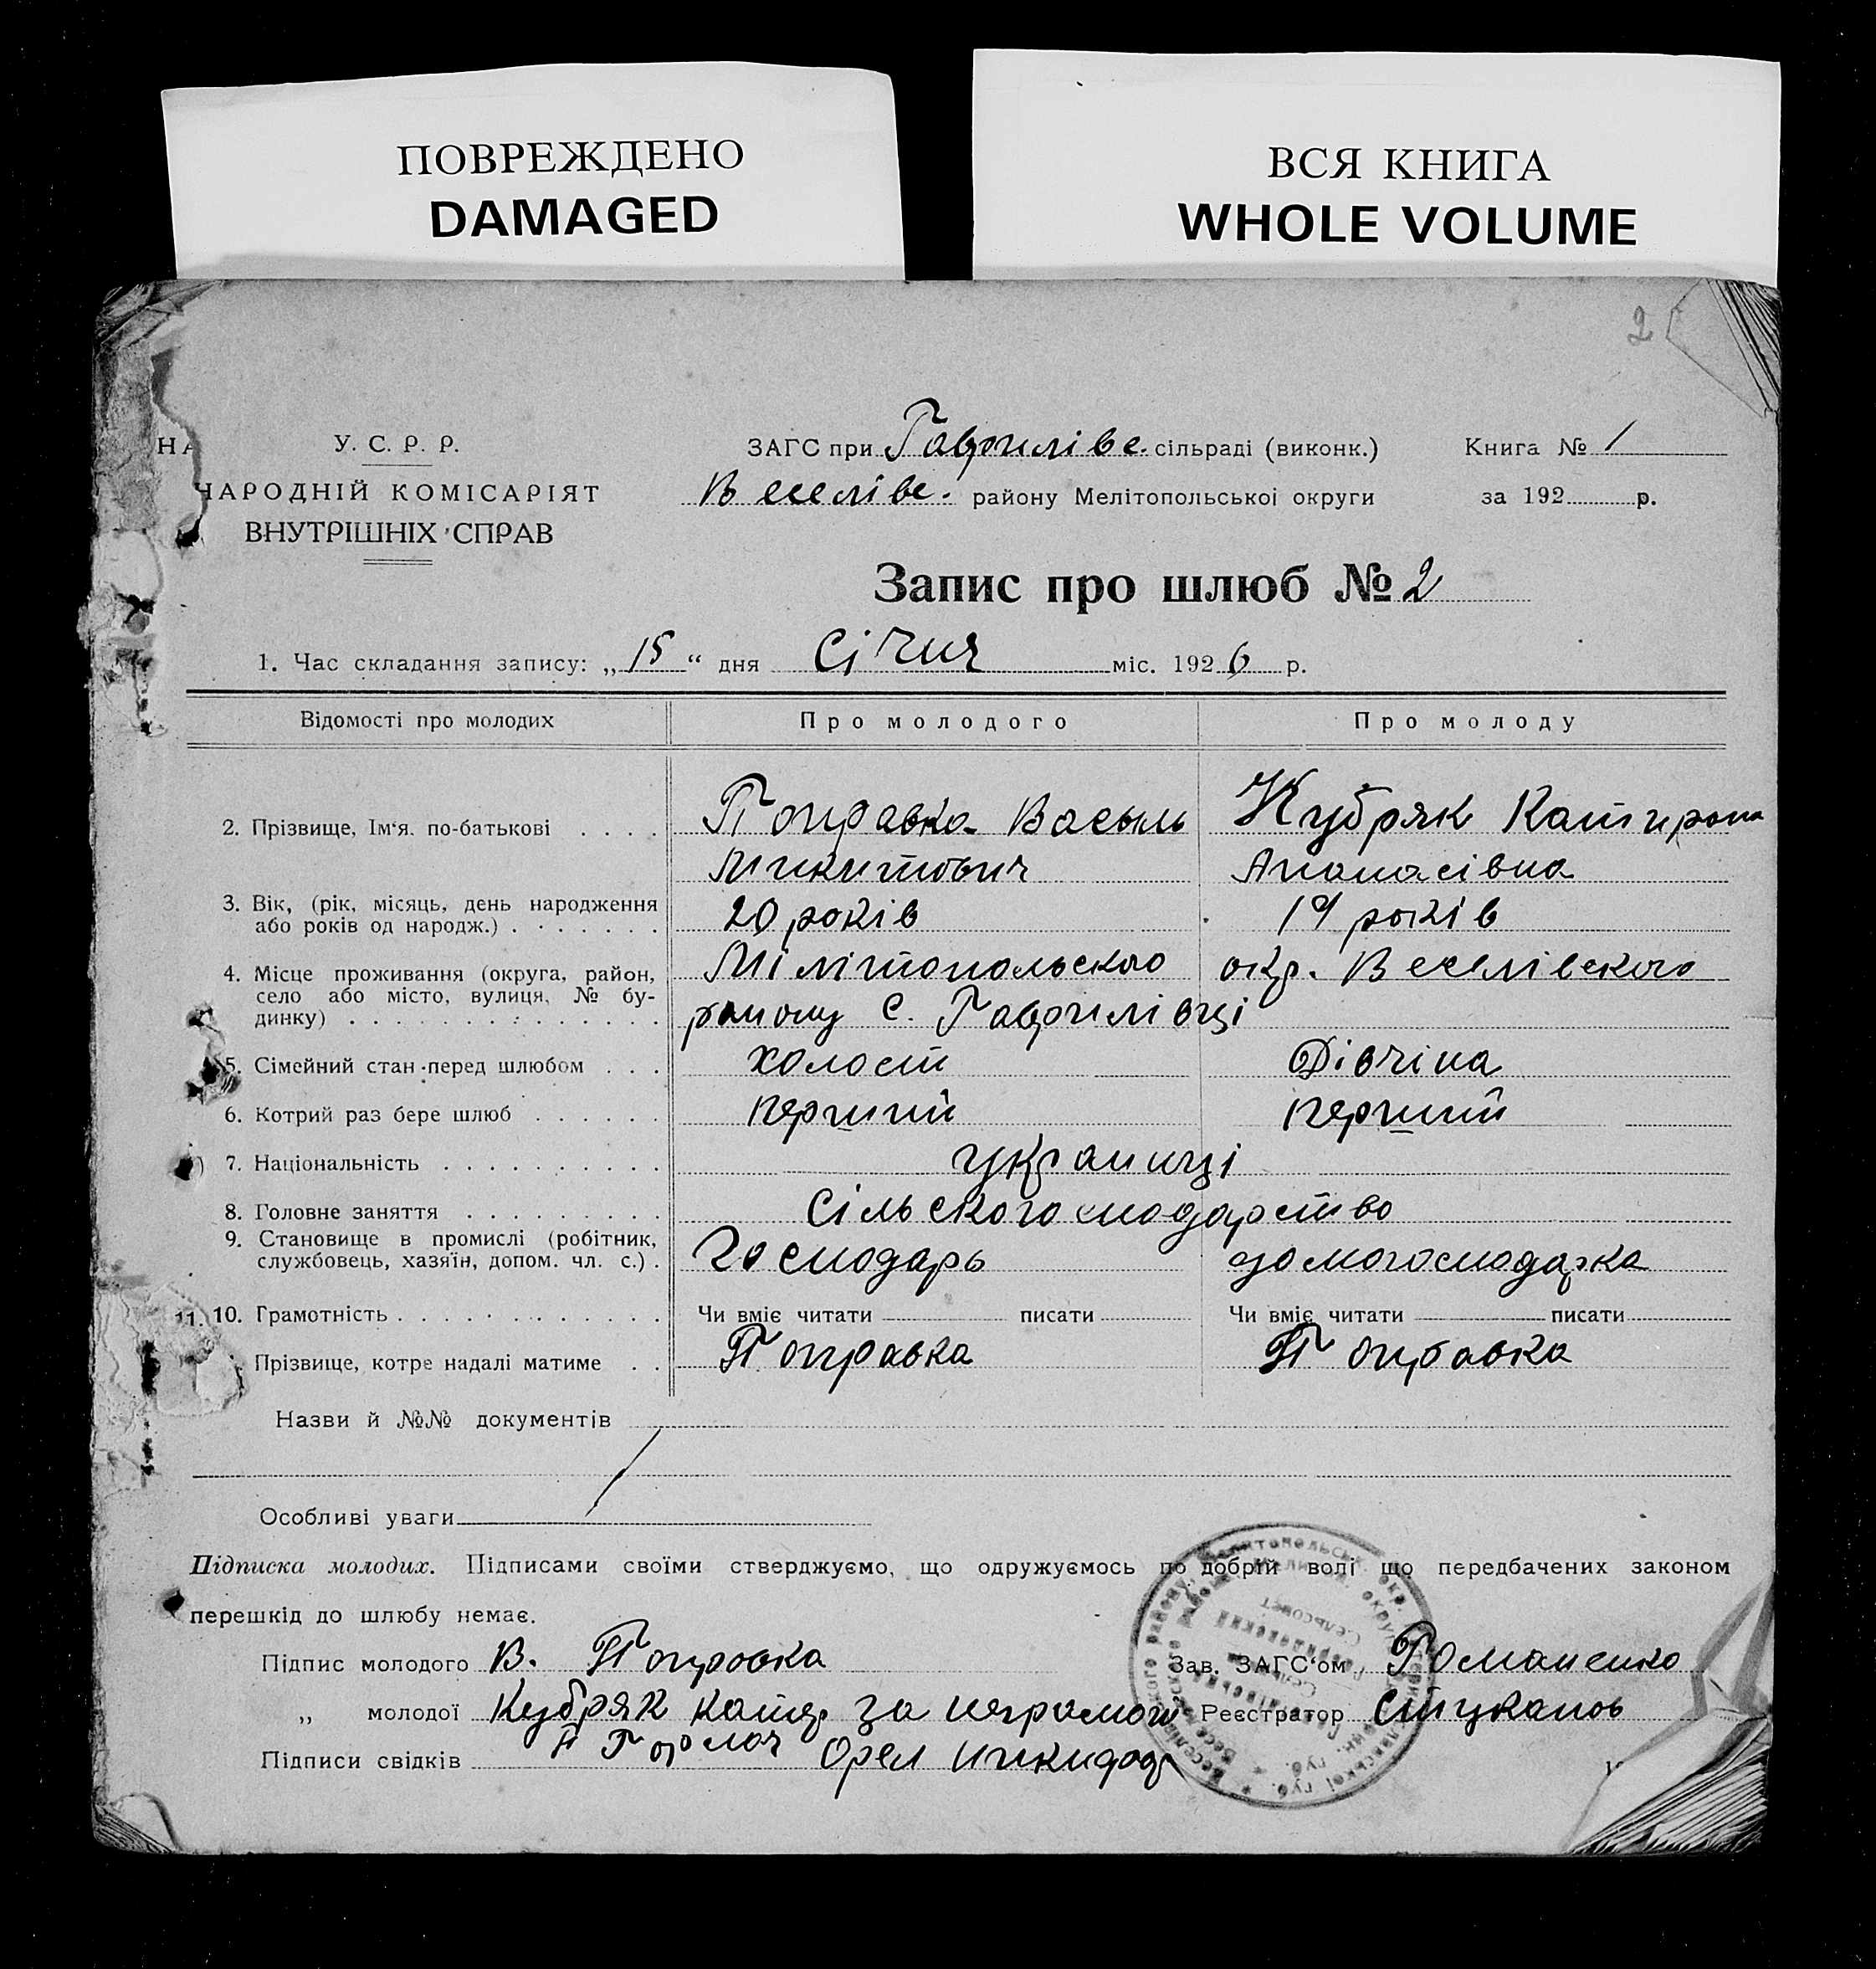 ПОВРЕЖДЕНО
DAMAGED
ВСЯ КНИГА
WHOLE VOLUME
2
НА
У. С. Р. Р.
НАРОДНІЙ КОМІСАРІЯТ
ВНУТРІШНІХ СПРАВ
ЗАГС при Гаврилівс. сільраді (виконк.)
Веселівс. району Мелітопольської округи
Книга № 1
за 192 р.
Запис про шлюб № 2
1. Час складання запису: „15“ дня Січня міс. 1926 р.
Відомості про молодих Про молодого Про молоду
2. Прізвище, Ім‘я. по-батькові . . . . Поправка Василь Кубряк Катирона
Микитович Апанасівна
3. Вік, (рік, місяць, день народження 20 років 19 років
або років од народж.) . . . . . . .
4. Місце проживання (округа, район, Мілітопольского окр. Веселівского
село або місто, вулиця, № бу-
динку) . . . . . . . . . . . . . . району С. Гаврилівці
5. Сімейний стан перед шлюбом . . . холост Дівчіна
6. Котрий раз бере шлюб . . . . . . перший перший
7. Національність . . . . . . . . . . українці
8. Головне заняття . . . . . . . . . Сільского сподарство
9. Становище в промислі (робітник, Господарь домогосподарка
службовець, хазяїн, допом. чл. с.) .
11. 10. Грамотність . . . . . . . . . . . . Чи вміє читати писати Чи вміє читати писати
Прізвище, котре надалі матиме . . Поправка Поправка
Назви й №№ документів
Особливі уваги
Підписка молодих. Підписами своїми стверджуємо, що одружуємось по добрій волі що передбачених законом
перешкід до шлюбу немає.
Підпис молодого В. Поправка Зав. ЗАГС‘ом Романенко
„ молодої Кубряк катер за неграмот Реєстратор
Підписи свідків Орел Никифор